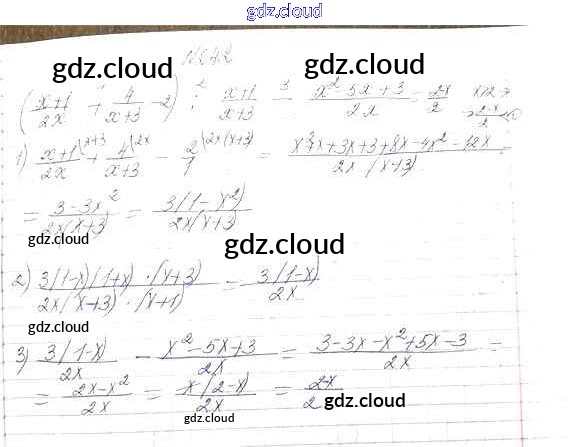 gdz.cloud
№242
gdz.cloud gdz.cloud
(x+1/2x + 4/x+3 - 2) : x+1/x+3 - x²-5x+3/2x = 2-x/2
1) x+1\x+3/2x + 4\2x/x+3 - 2\2x(x+3)/1 = x²+x+3x+3+8x-4x²-12x/2x(x+3) =
= 3-3x²/2x(x+3) = 3(1-x²)/2x(x+3)
gdz.cloud gdz.cloud
2) 3(1-x)(1+x)·(x+3)/2x(x+3)·(x+1) = 3(1-x)/2x
gdz.cloud
gdz.cloud
3) 3(1-x)/2x - x²-5x+3/2x = 3-3x-x²+5x-3/2x =
= 2x-x²/2x = x(2-x)/2x = 2-x/2
gdz.cloud gdz.cloud